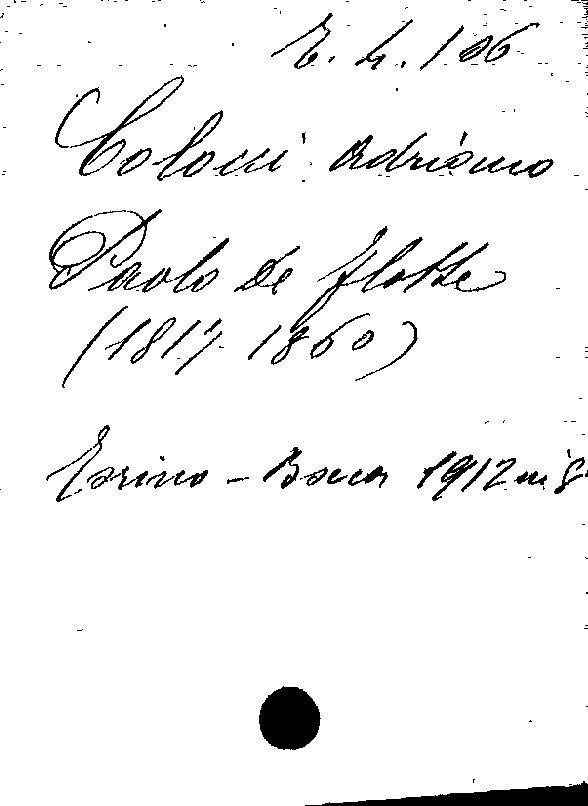 E. 4. 106
Colocci Adriano
Paolo de Flotte
(1817 1860)
Torino - Bocca 1912 in 8°